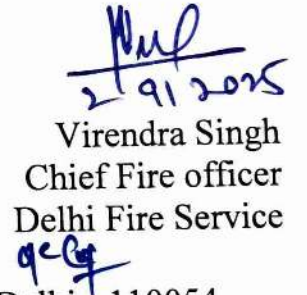 2/9/2025
Virendra Singh
Chief Fire officer
Delhi Fire Service
Delhi 110054